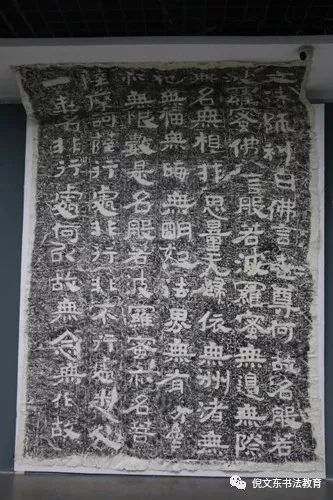 文殊師利白佛言世尊何故名般若
波羅蜜佛言般若波羅蜜無邊無際
無名無相非思量無歸依無洲渚無
犯無福無晦無明如法界無有分齊
亦無限數是名般若波羅蜜亦名菩
薩摩訶薩行處非行非不行處悉入
一乘名非行處何以故無念無作故
倪文东书法教育